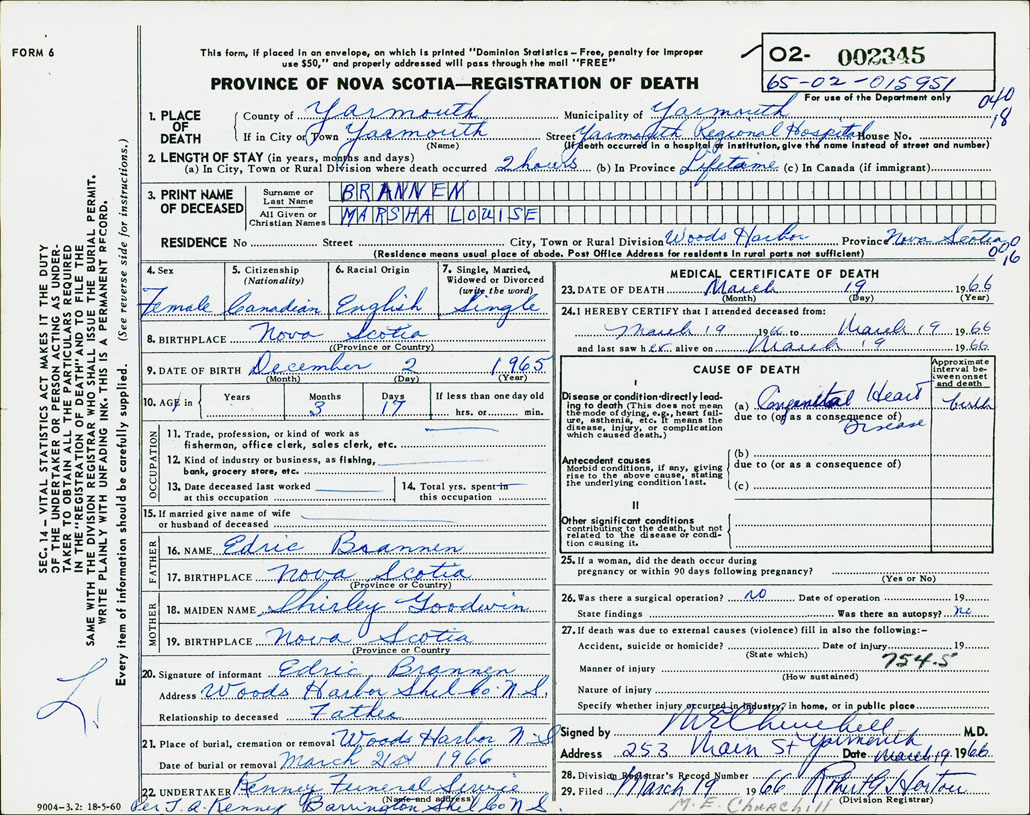 FORM 6
This form, if placed in an envelope, on which is printed "Dominion Statistics – Free, penalty for improper
use $50," and properly addressed will pass through the mail "FREE"
PROVINCE OF NOVA SCOTIA—REGISTRATION OF DEATH
O2- 002345
65-02-015951
For use of the Department only
040
18
SEC. 14 – VITAL STATISTICS ACT MAKES IT THE DUTY
OF THE UNDERTAKER OR PERSON ACTING AS UNDER-
TAKER TO OBTAIN ALL THE PARTICULARS REQUIRED
IN THE "REGISTRATION OF DEATH" AND TO FILE THE
SAME WITH THE DIVISION REGISTRAR WHO SHALL ISSUE THE BURIAL PERMIT.
WRITE PLAINLY WITH UNFADING INK. THIS IS A PERMANENT RECORD.
Every item of information should be carefully supplied. (See reverse side for instructions.)
1. PLACE OF DEATH
County of Yarmouth Municipality of Yarmouth
If in City or Town Yarmouth Street Yarmouth Regional Hospital House No.
(Name) (If death occurred in a hospital or institution, give the name instead of street and number)
2. LENGTH OF STAY (in years, months and days)
(a) In City, Town or Rural Division where death occurred 2 hours (b) In Province Lifetime (c) In Canada (if immigrant)
3. PRINT NAME OF DECEASED
Surname or Last Name BRANNEN
All Given or Christian Names MARSHA LOUISE
RESIDENCE No Street City, Town or Rural Division Woods Harbor Province Nova Scotia
000
16
(Residence means usual place of abode. Post Office Address for residents in rural parts not sufficient)
4. Sex Female
5. Citizenship (Nationality) Canadian
6. Racial Origin English
7. Single, Married, Widowed or Divorced (write the word) Single
8. BIRTHPLACE Nova Scotia
(Province or Country)
9. DATE OF BIRTH December 2 1965
(Month) (Day) (Year)
10. AGE in Years Months 3 Days 17 If less than one day old
hrs. or min.
OCCUPATION
11. Trade, profession, or kind of work as
fisherman, office clerk, sales clerk, etc.
12. Kind of industry or business, as fishing,
bank, grocery store, etc.
13. Date deceased last worked at this occupation
14. Total yrs. spent in this occupation
15. If married give name of wife
or husband of deceased
FATHER
16. NAME Edric Brannen
17. BIRTHPLACE Nova Scotia
(Province or Country)
MOTHER
18. MAIDEN NAME Shirley Goodwin
19. BIRTHPLACE Nova Scotia
(Province or Country)
20. Signature of informant Edric Brannen
Address Woods Harbor Shel Co. N.S.
Relationship to deceased Father
21. Place of burial, cremation or removal Woods Harbor N-S
Date of burial or removal March 21st 1966
22. UNDERTAKER Kenney Funeral Service
(Name and address)
9004-3.2: 18-5-60 Per T. A. Kenney Barrington Shel Co N.S.
MEDICAL CERTIFICATE OF DEATH
23. DATE OF DEATH March 19 1966
(Month) (Day) (Year)
24. I HEREBY CERTIFY that I attended deceased from:
March 19 1966 to March 19 1966
and last saw her alive on March 19 1966
CAUSE OF DEATH
Approximate interval between onset and death
I
Disease or condition directly lead-
ing to death (This does not mean
the mode of dying, e.g., heart fail-
ure, asthenia, etc. It means the
disease, injury, or complication
which caused death.)
(a) Congenital Heart birth
due to (or as a consequence of)
Disease
Antecedent causes
Morbid conditions, if any, giving
rise to the above cause, stating
the underlying condition last.
(b)
due to (or as a consequence of)
(c)
II
Other significant conditions
contributing to the death, but not
related to the disease or condi-
tion causing it.
25. If a woman, did the death occur during
pregnancy or within 90 days following pregnancy?
(Yes or No)
26. Was there a surgical operation? no Date of operation 19
State findings Was there an autopsy? no
27. If death was due to external causes (violence) fill in also the following:–
Accident, suicide or homicide? Date of injury 19
(State which) 754.5
Manner of injury
(How sustained)
Nature of injury
Specify whether injury occurred in industry, in home, or in public place
Signed by M E Churchill M.D.
Address 253 Main St Yarmouth Date March 19 1966
28. Division Registrar's Record Number
29. Filed March 19 1966 Robert G Horton
(Division Registrar)
M. E. CHURCHILL